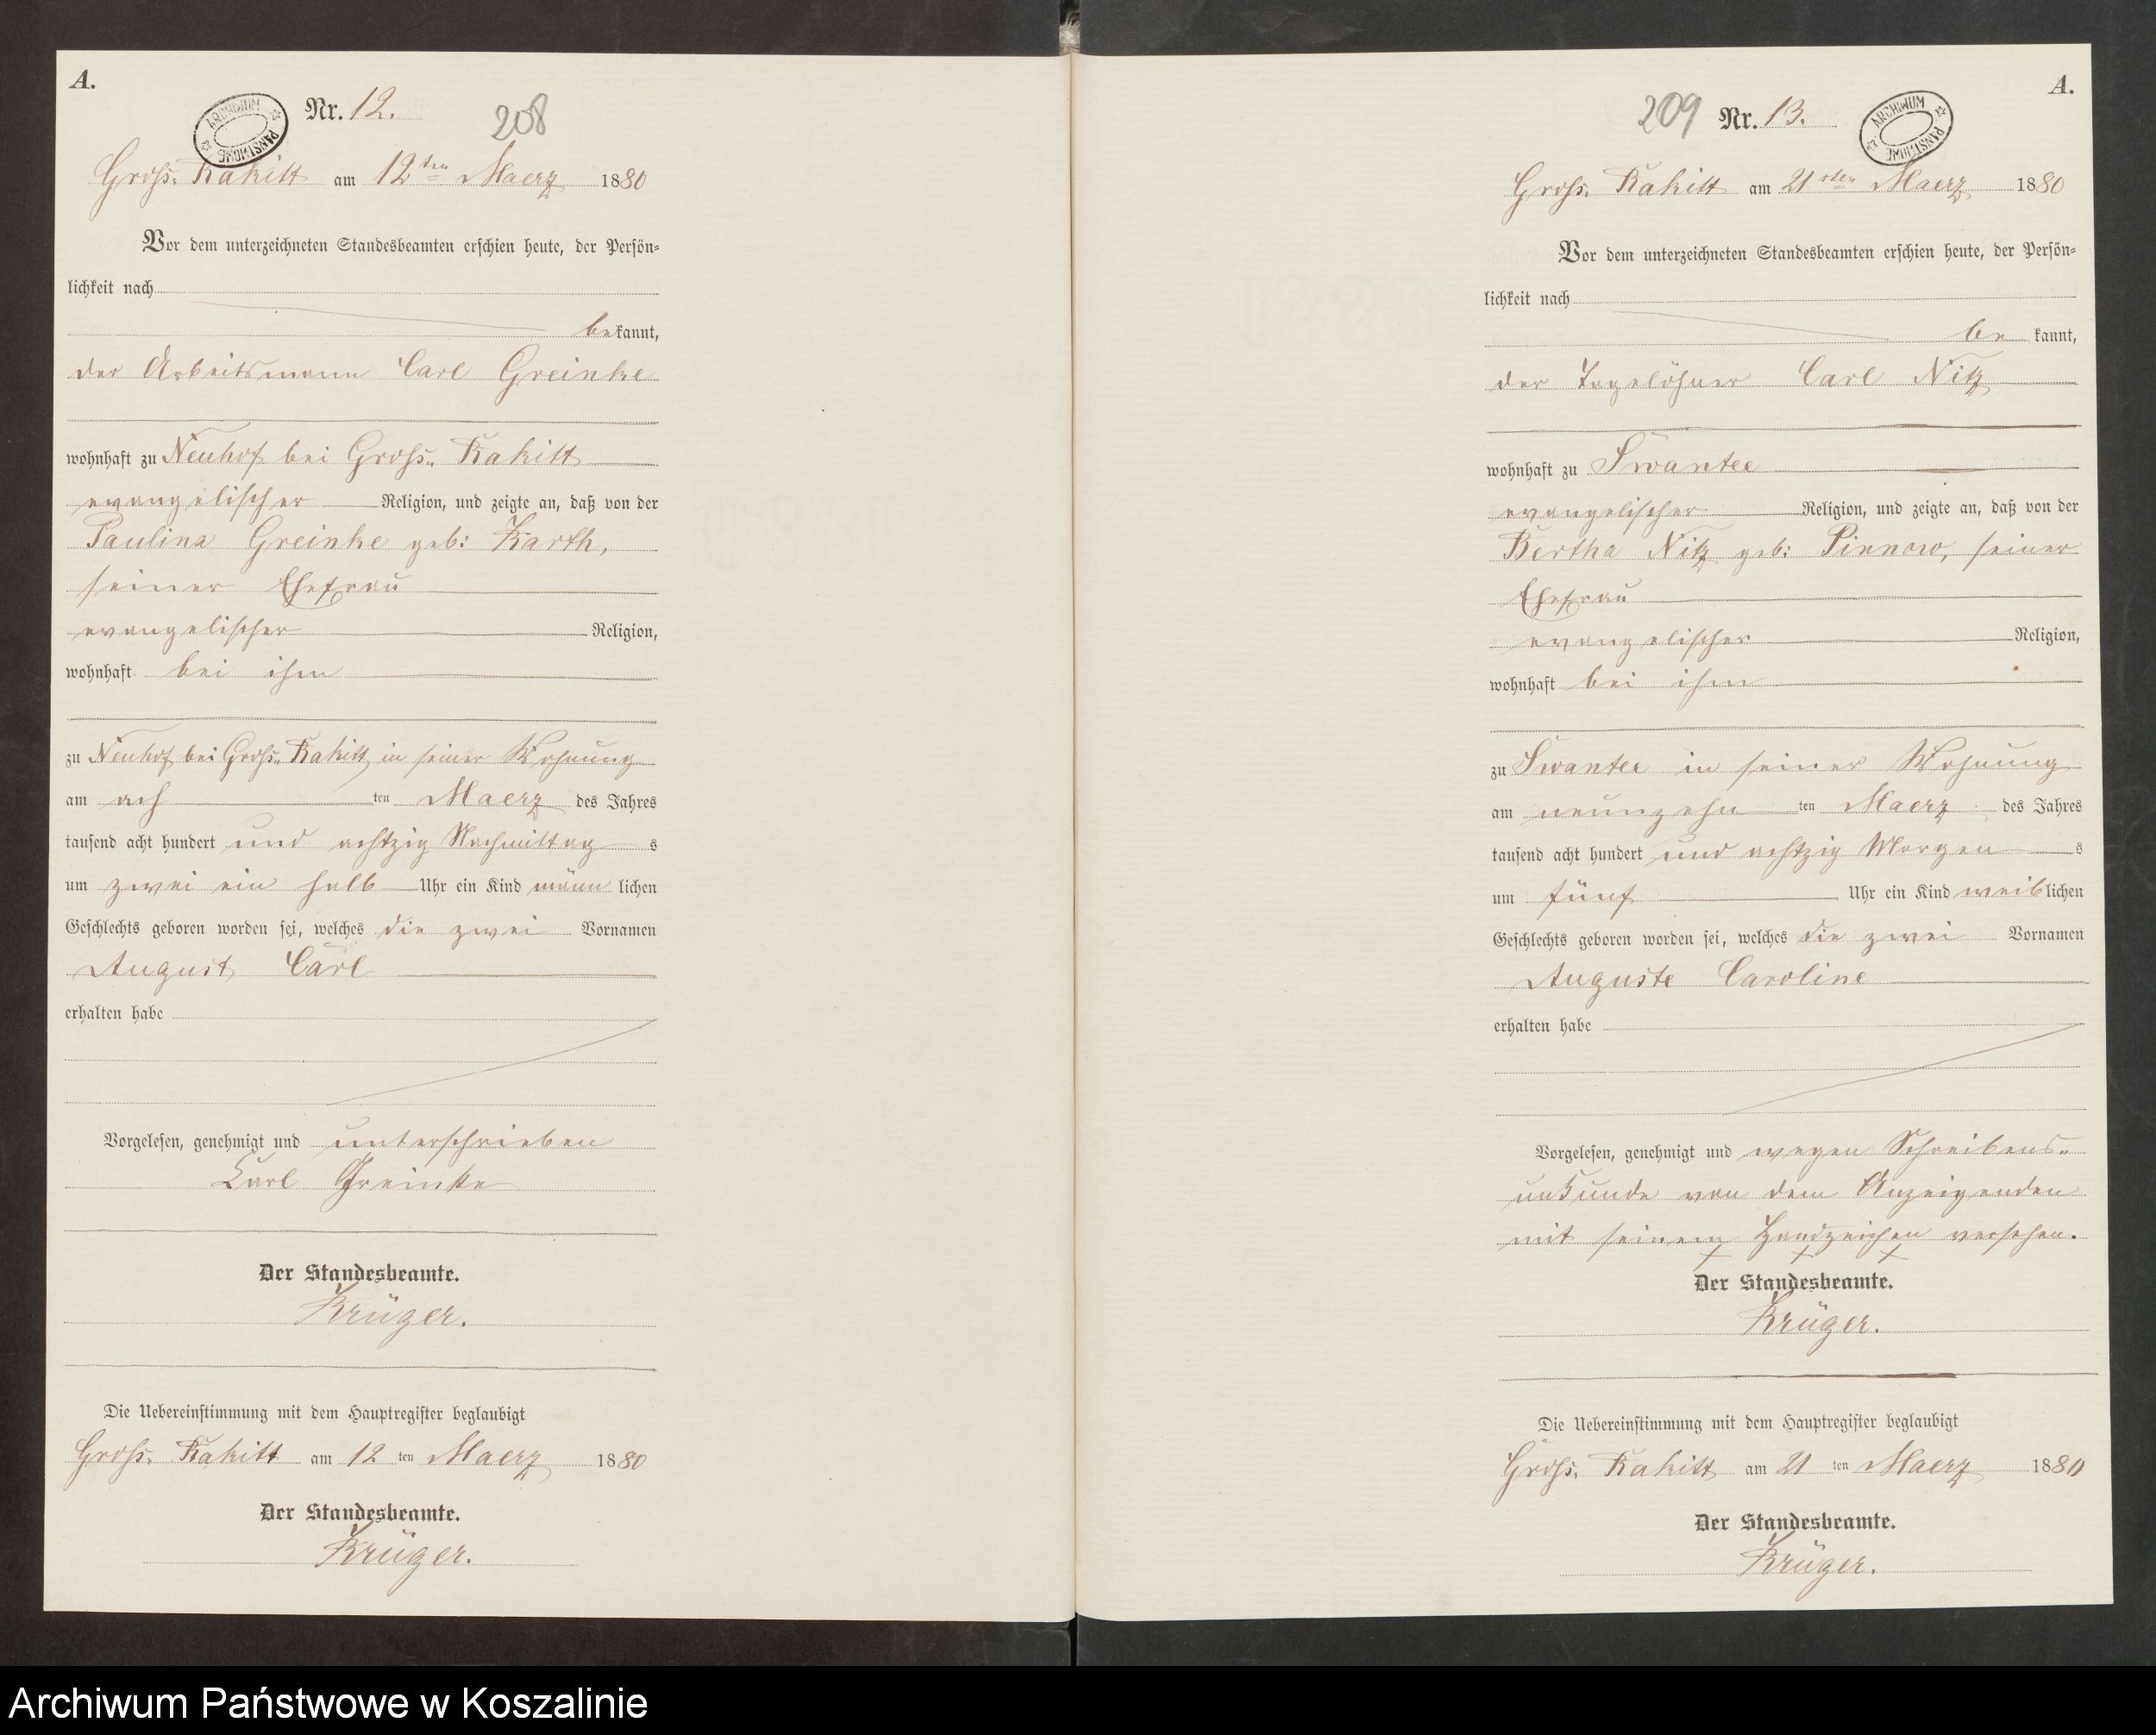 A.
ARCHIWUM PAŃSTWOWE
Nr. 12.
208
Gross. Rakitt am 12ten Maerz 1880
Vor dem unterzeichneten Standesbeamten erschien heute, der Persön-
lichkeit nach
bekannt,
der Arbeitsmann Carl Greinke
wohnhaft zu Neuhof bei Gross. Rakitt
evangelischer Religion, und zeigte an, daß von der
Paulina Greinke geb: Karth,
seiner Ehefrau
evangelischer Religion,
wohnhaft bei ihm
zu Neuhof bei Gross. Rakitt, in seiner Wohnung
am ach ten Maerz des Jahres
tausend acht hundert und achtzig Nachmittag s
um zwei ein halb Uhr ein Kind männ lichen
Geschlechts geboren worden sei, welches die zwei Vornamen
August Carl
erhalten habe
Vorgelesen, genehmigt und unterschrieben
Carl Greinke
Der Standesbeamte.
Krüger.
Die Uebereinstimmung mit dem Hauptregister beglaubigt
Gross. Rakitt am 12 ten Maerz 1880
Der Standesbeamte.
Krüger.
A.
209
Nr. 13.
ARCHIWUM PAŃSTWOWE
Gross. Rakitt am 21sten Maerz 1880
Vor dem unterzeichneten Standesbeamten erschien heute, der Persön-
lichkeit nach
be kannt,
der Tagelöhner Carl Nitz
wohnhaft zu Swantee
evangelischer Religion, und zeigte an, daß von der
Bertha Nitz geb: Pinnow, seiner
Ehefrau
evangelischer Religion,
wohnhaft bei ihm
zu Swantee in seiner Wohnung
am neunzehn ten Maerz des Jahres
tausend acht hundert und achtzig Morgen s
um fünf Uhr ein Kind weiblichen
Geschlechts geboren worden sei, welches die zwei Vornamen
Auguste Caroline
erhalten habe
Vorgelesen, genehmigt und wegen Schreibens-
unkunde von dem Anzeigenden
mit seinem Handzeichen versehen.
+ + +
Der Standesbeamte.
Krüger.
Die Uebereinstimmung mit dem Hauptregister beglaubigt
Gross. Rakitt am 21 ten Maerz 1880
Der Standesbeamte.
Krüger.
Archiwum Państwowe w Koszalinie